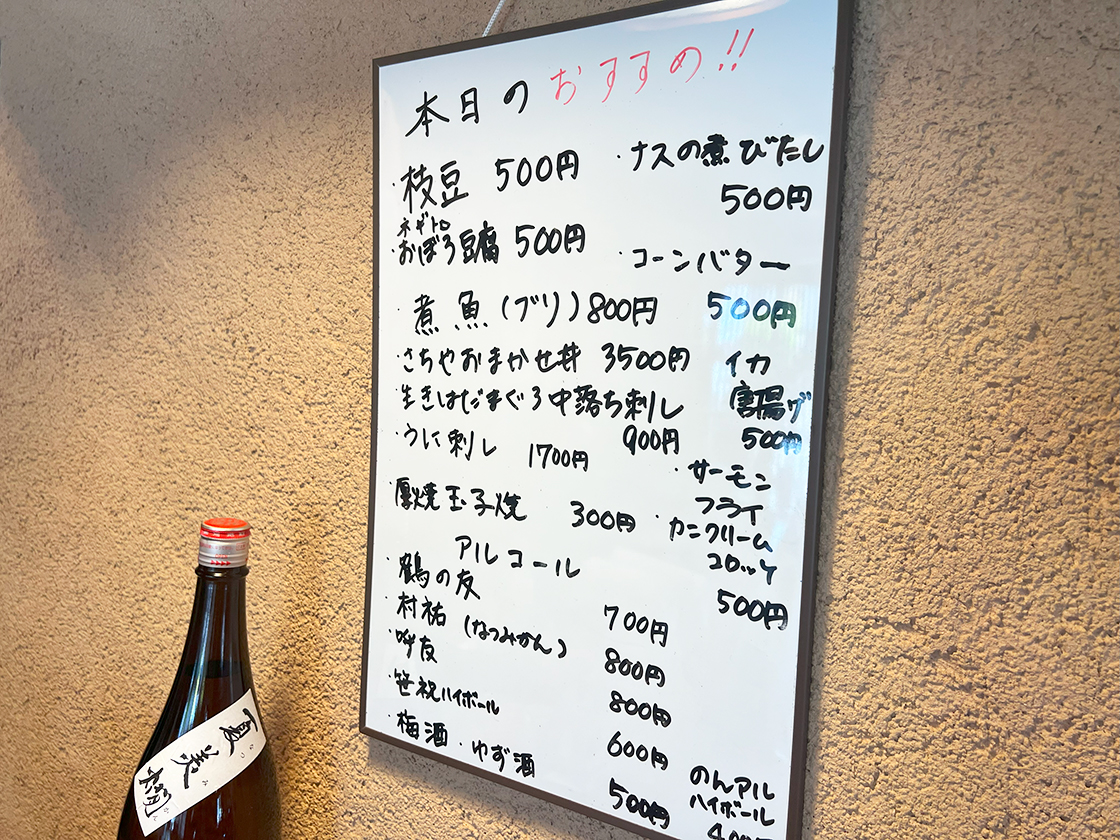 本日のおすすめ!!
・枝豆 500円
ネギトロ
・おぼろ豆腐 500円
煮魚(ブリ)800円
・さちやおまかせ丼 3500円
・生きはだまぐろ中落ち刺し
900円
・うに刺し 1700円
・厚焼玉子焼 300円
・ナスの煮びたし
500円
・コーンバター
500円
イカ
唐揚げ
500円
・サーモン
フライ
・カニクリーム
コロッケ
500円
アルコール
・鶴の友 700円
・村祐(なつみかん) 800円
・呼友 800円
・笹祝ハイボール 600円
・梅酒・ゆず酒 500円
のんアル
ハイボール
夏美